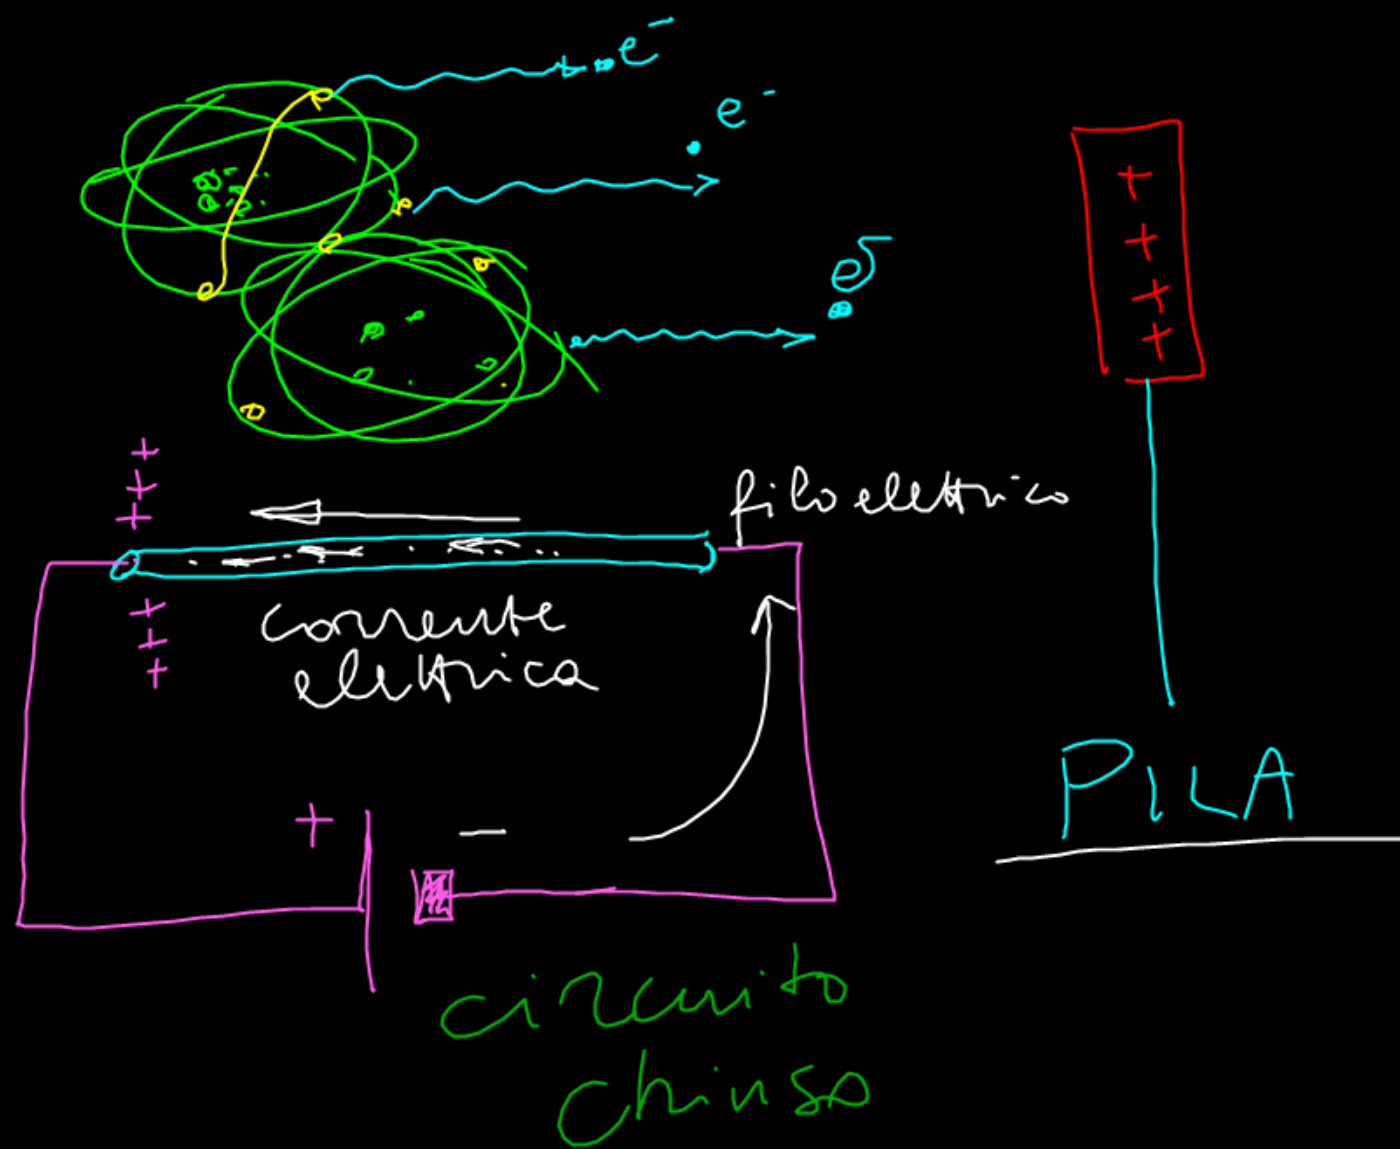 e⁻
e⁻
e⁻
+
+
+
+
+
+
+
filo elettrico
+
+
+
corrente
elettrica
+ −
PILA
circuito
chiuso